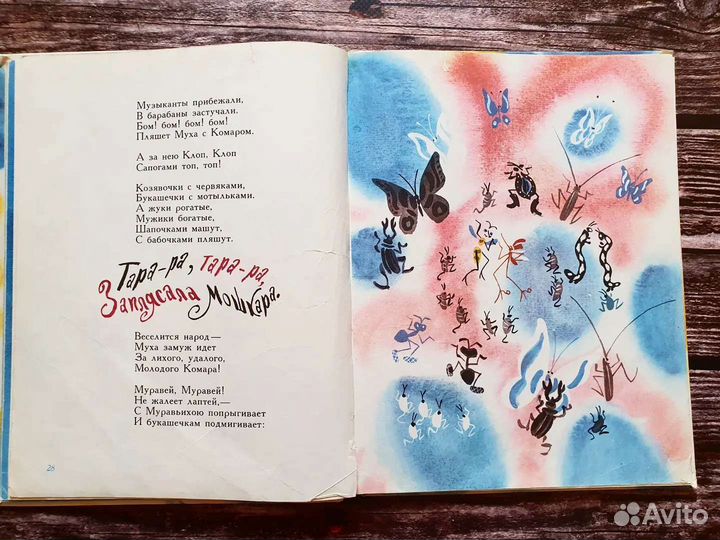 Музыканты прибежали,
В барабаны застучали.
Бом! бом! бом! бом!
Пляшет Муха с Комаром.
А за нею Клоп, Клоп
Сапогами топ, топ!
Козявочки с червяками,
Букашечки с мотыльками.
А жуки рогатые,
Мужики богатые,
Шапочками машут,
С бабочками пляшут.
Тара-ра, тара-ра,
Заплясала Мошкара.
Веселится народ—
Муха замуж идет
За лихого, удалого,
Молодого Комара!
Муравей, Муравей!
Не жалеет лаптей,—
С Муравьихою попрыгивает
И букашечкам подмигивает:
28
Avito